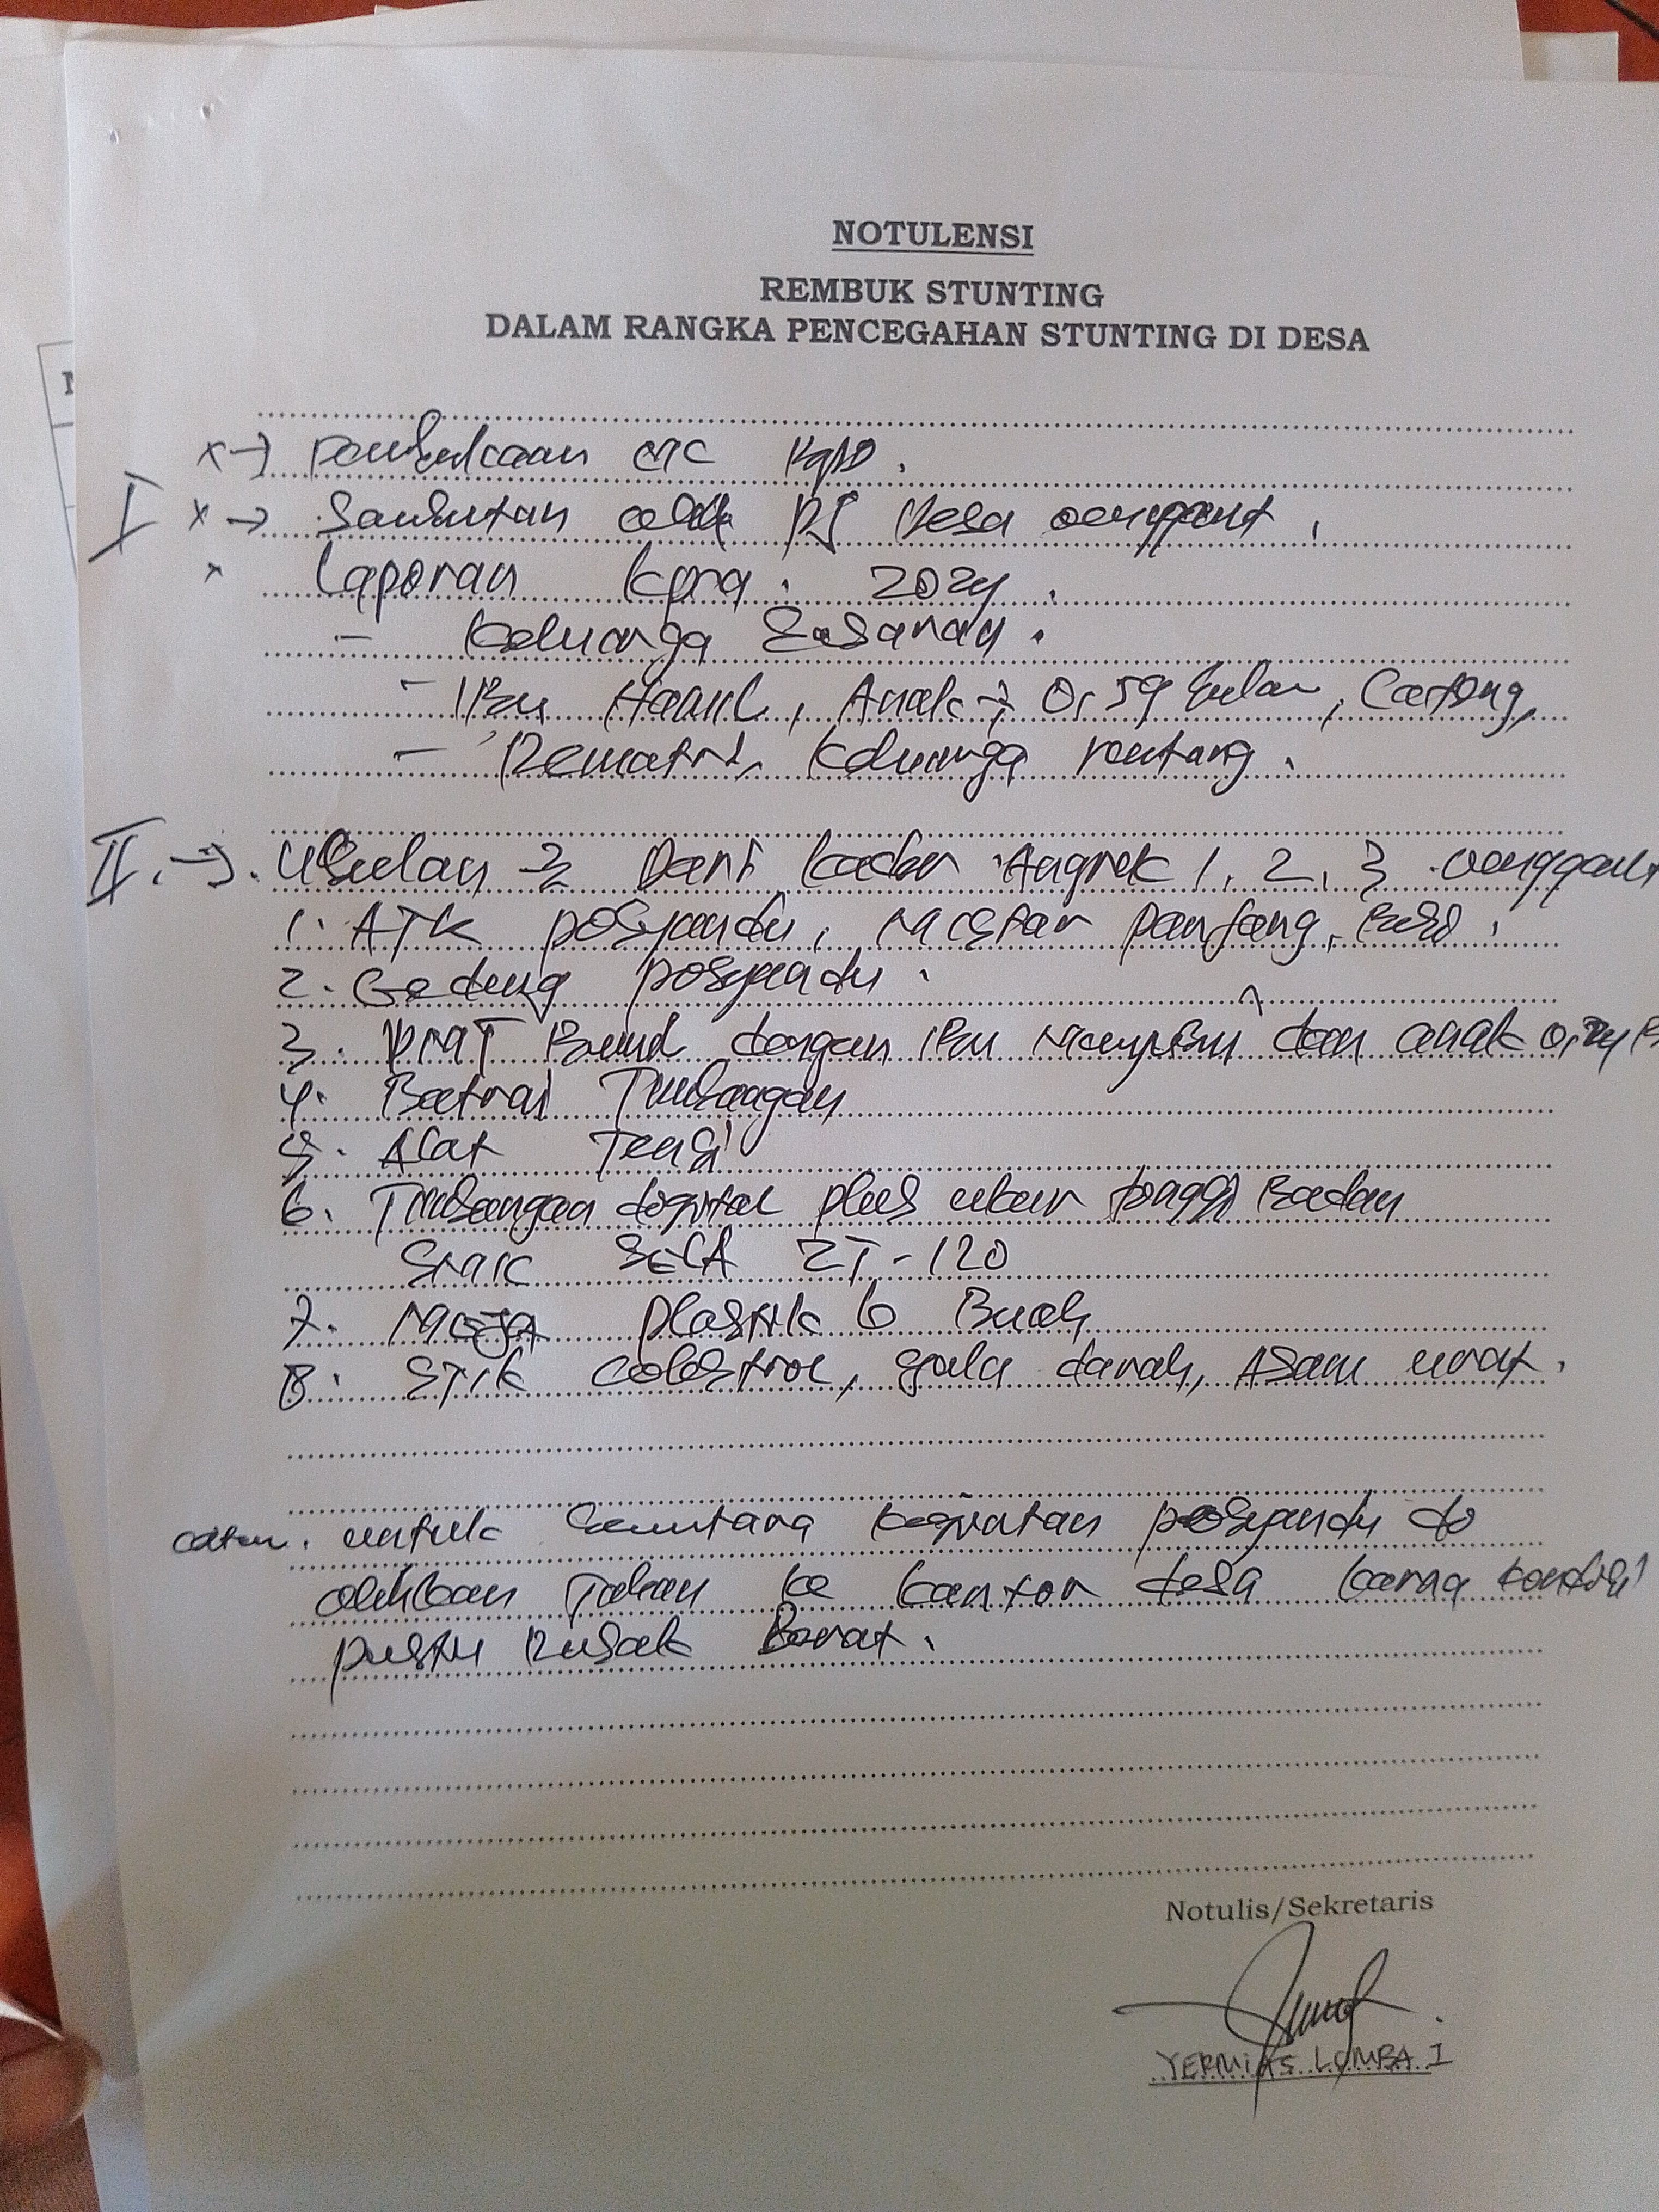 NOTULENSI
REMBUK STUNTING
DALAM RANGKA PENCEGAHAN STUNTING DI DESA
x → Pembukaan
I x → Sambutan oleh PJ Desa
x Laporan 2024.
- Keluarga Sasaran.
- Ibu Hamil, Anak → 0, 59 bulan, Cateng,
- Rematri, Keluarga rentang.
II. →. Usulan → Dari kader Angrek 1, 2, 3
1. ATK posyandu, Meter panjang,
2. Gedung posyandu.
3. PMT Bumil dengan ibu Menyusui dan anak 0,24 B
4. Batrai Timbangan
5. Alat Tensi
6. Timbangan digital plus ukur tinggi Badan
SECA ZT-120
7. Meja plastik 6 Buah
8. Stik colestrol, gula darah, Asam urat.
untuk Sementara kegiatan posyandu di
alihkan ke kantor desa karna kondisi
pustu Rusak Berat.
Notulis/Sekretaris
YERMIAS LOMBA I